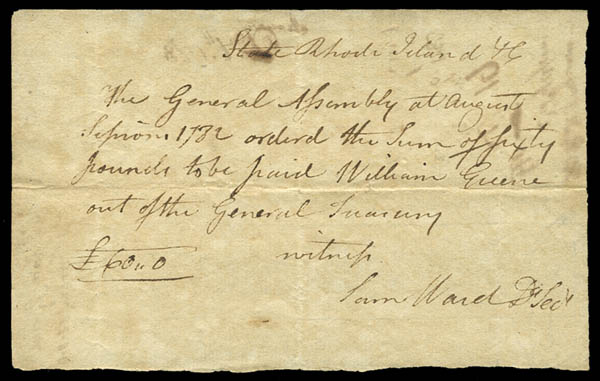 State Rhode Island &C
The General Assembly at August
Session 1782 orderd the Sum of sixty
pounds to be paid William Greene
out of the General Treasury
£60..0 witness
Sam Ward D Secy